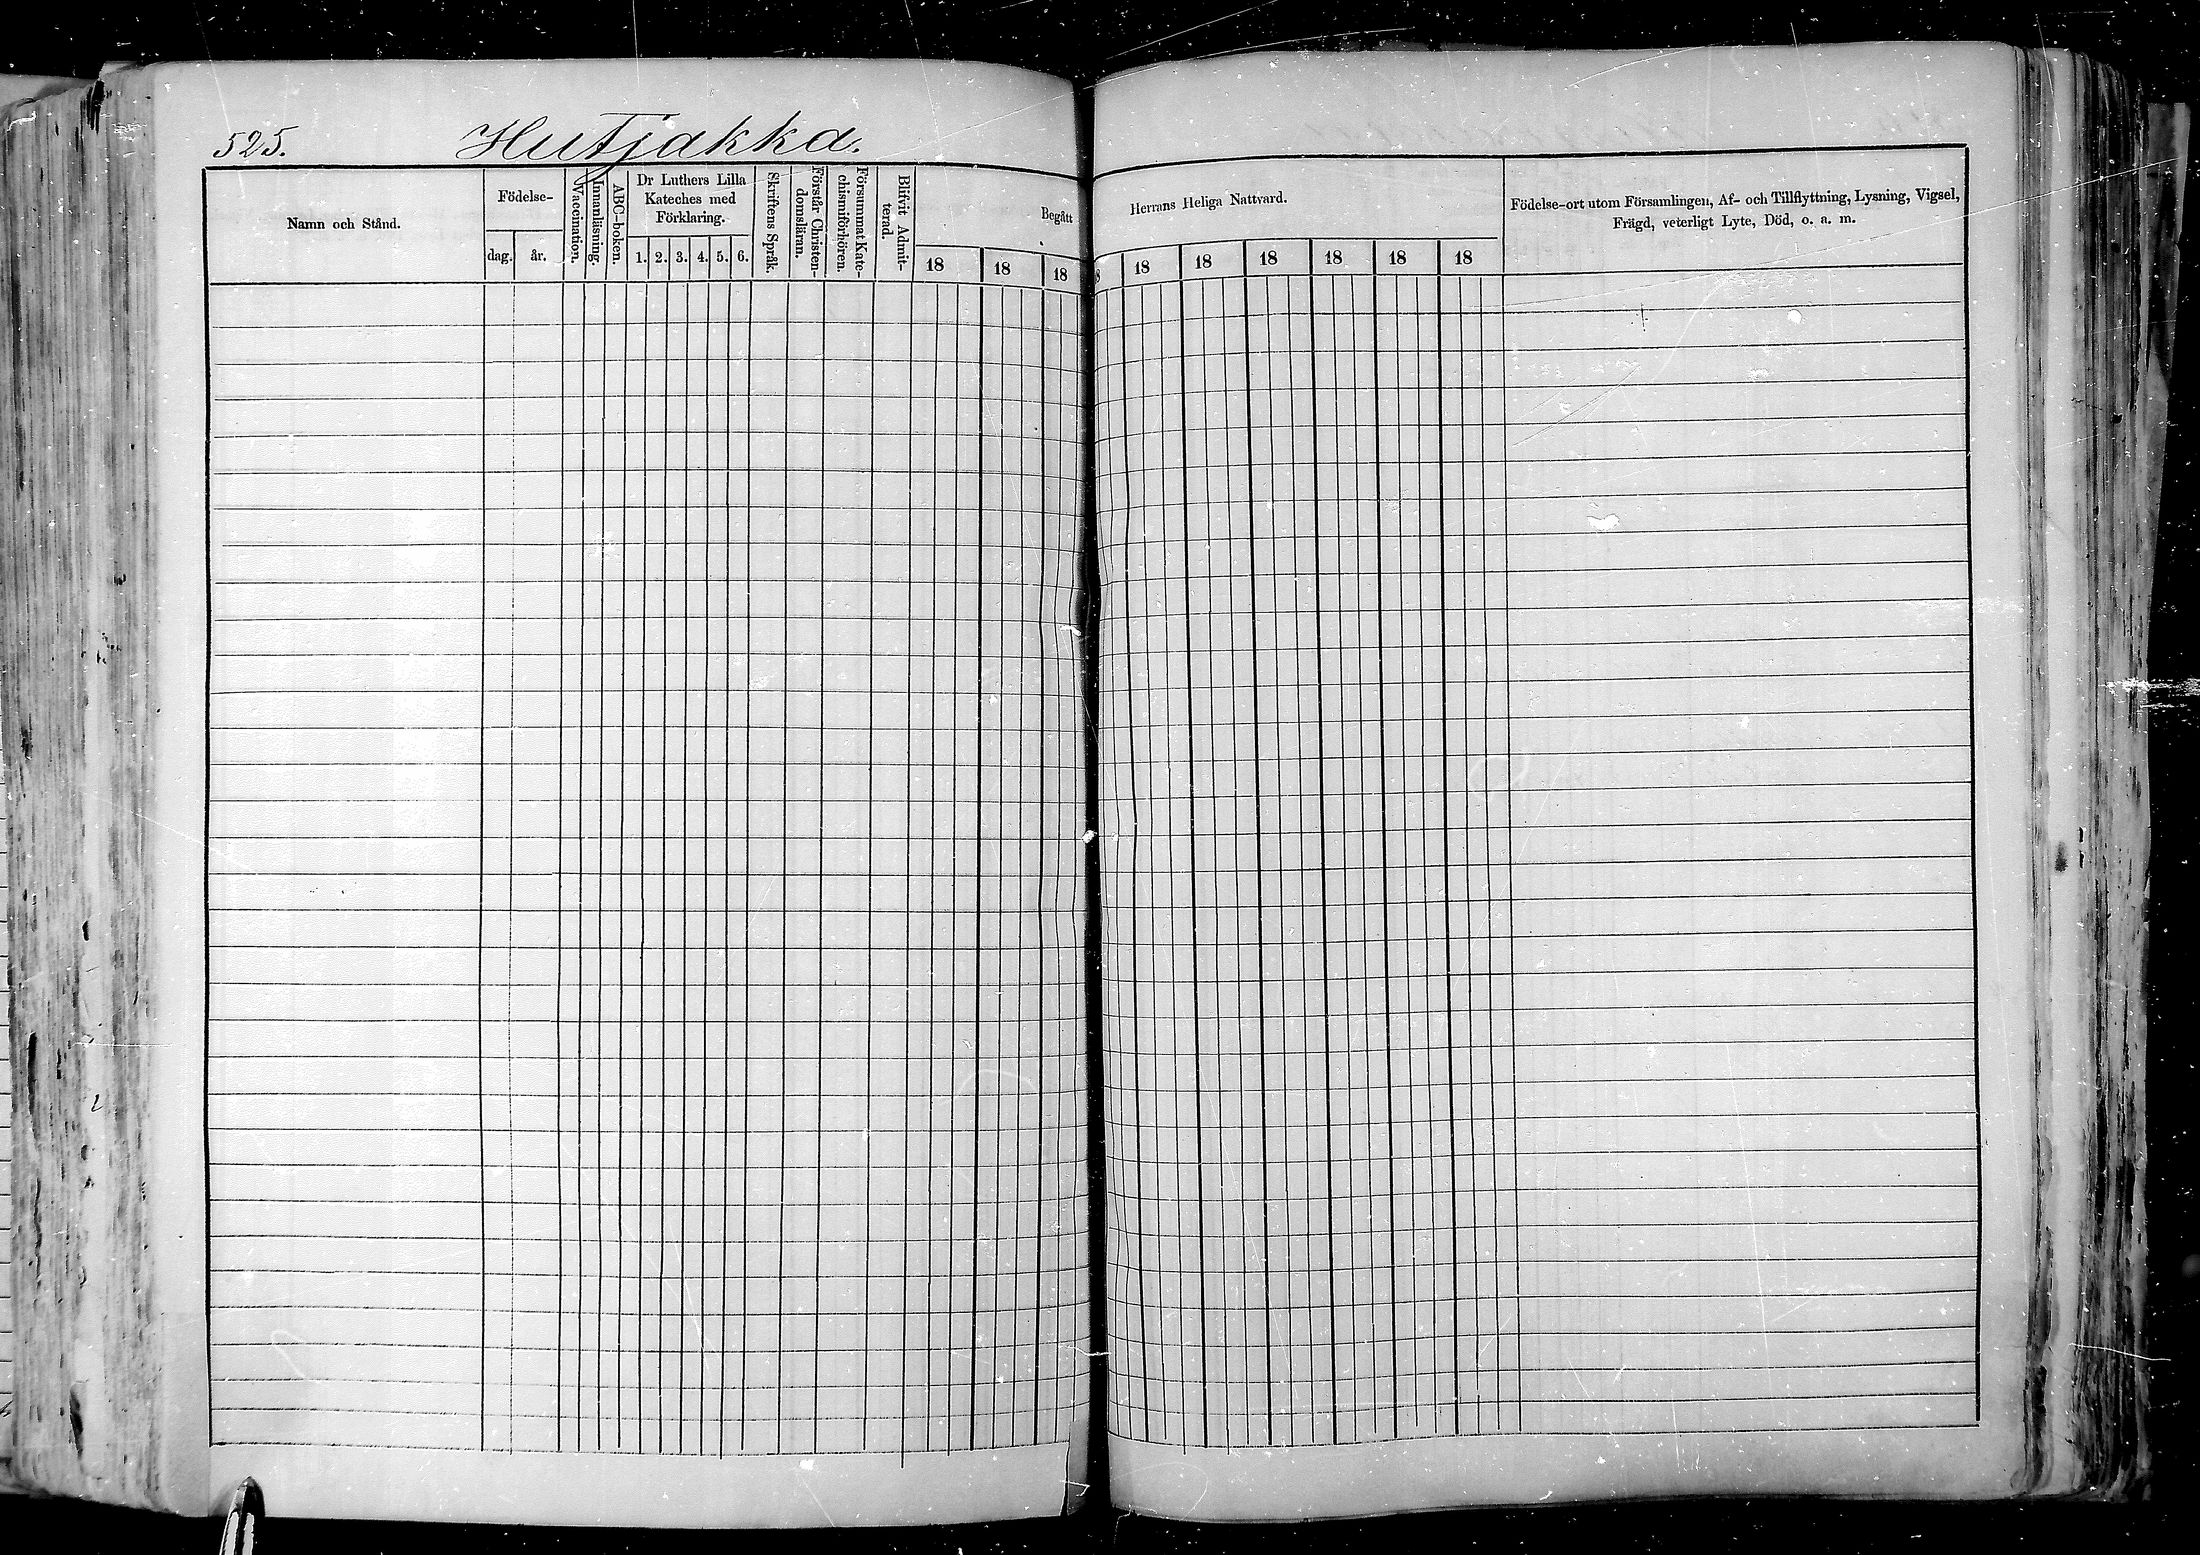 525. Hutjakka.
Namn och Stånd.
Födelse-
dag. år.
Vaccination.
Innanläsning.
ABC-boken.
Dr Luthers Lilla
Kateches med
Förklaring.
1. 2. 3. 4. 5. 6.
Skriftens Språk.
Förstår Christen-
domsläran.
Försummat Kate-
chismiförhören.
Blifvit Admit-
terad.
Begått Herrans Heliga Nattvard.
18 18 18 18 18 18 18 18 18
Födelse-ort utom Församlingen, Af- och Tillflyttning, Lysning, Vigsel,
Frägd, veterligt Lyte, Död, o. a. m.